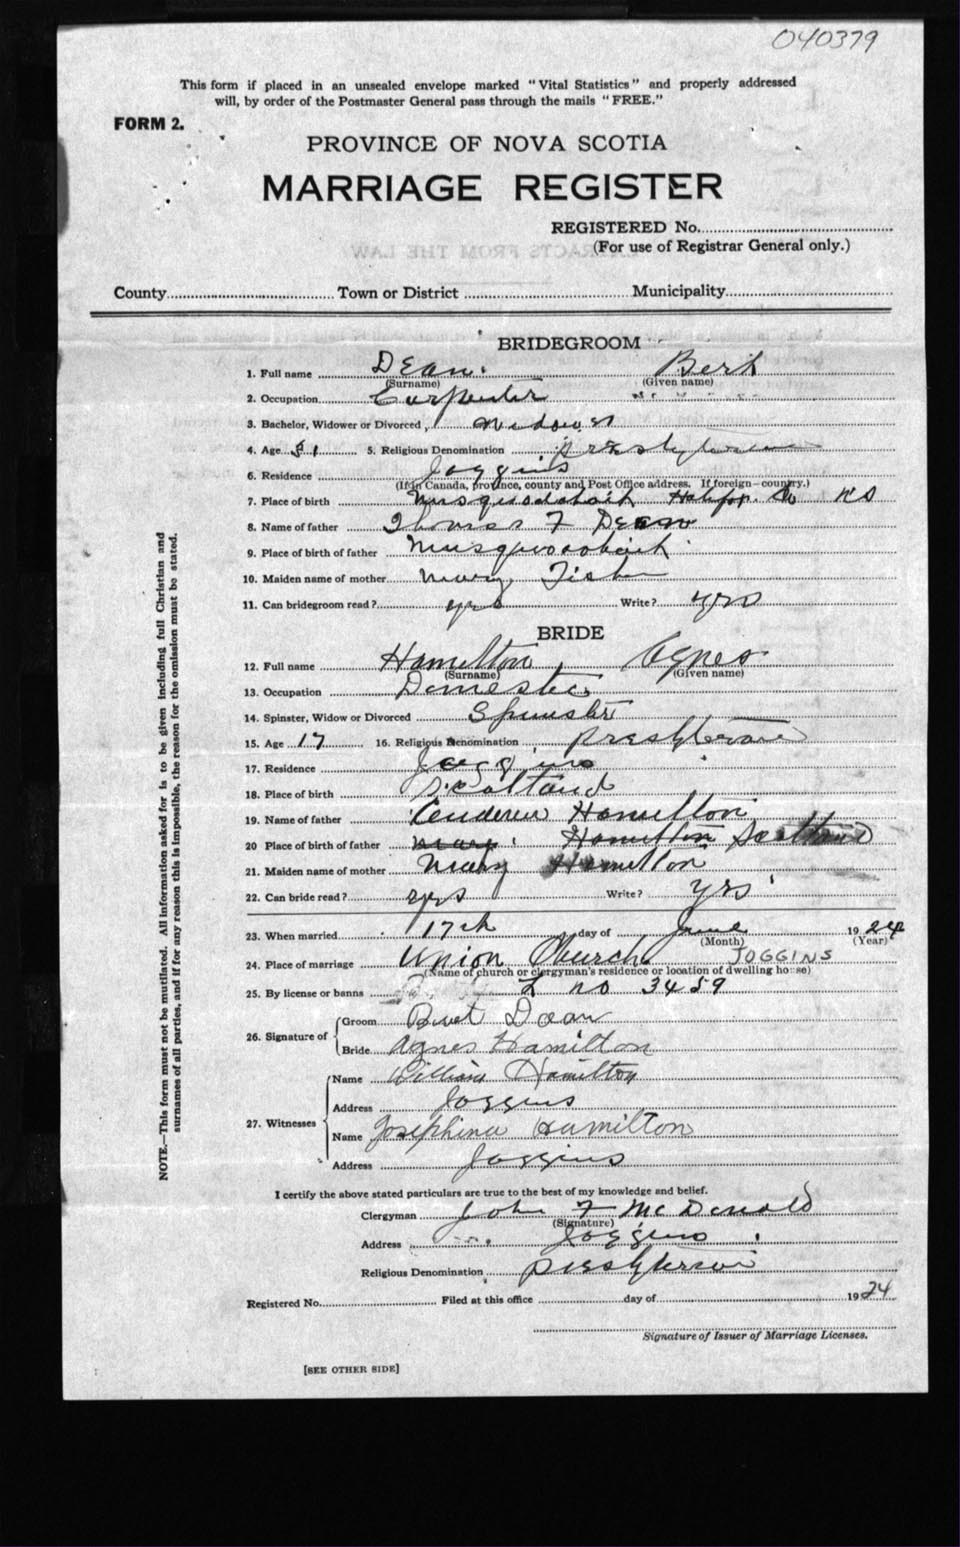 040379
This form if placed in an unsealed envelope marked "Vital Statistics" and properly addressed
will, by order of the Postmaster General pass through the mails "FREE."
FORM 2.
PROVINCE OF NOVA SCOTIA
MARRIAGE REGISTER
REGISTERED No.
(For use of Registrar General only.)
County Town or District Municipality
BRIDEGROOM
1. Full name Dean Bert
(Surname) (Given name)
2. Occupation Carpenter
3. Bachelor, Widower or Divorced Widower
4. Age 5. Religious Denomination Presbyterian
6. Residence Joggins
(If in Canada, province, county and Post Office address. If foreign—country.)
7. Place of birth Musquodoboit Halifax Co N S
8. Name of father Thomas F Dean
9. Place of birth of father Musquodoboit
10. Maiden name of mother Mary Fisher
11. Can bridegroom read? yes Write? yes
BRIDE
12. Full name Hamilton, Agnes
(Surname) (Given name)
13. Occupation Domestic
14. Spinster, Widow or Divorced Spinster
15. Age 17 16. Religious Denomination Presbyterian
17. Residence Joggins
18. Place of birth Scotland
19. Name of father Andrew Hamilton
20 Place of birth of father Mary Hamilton Scotland
21. Maiden name of mother Mary Hamilton
22. Can bride read? yes Write? yes
23. When married 17th day of June 1924
(Month) (Year)
24. Place of marriage Union Church JOGGINS
(Name of church or clergyman's residence or location of dwelling house)
25. By license or banns L no 3459
26. Signature of Groom Bert Dean
Bride Agnes Hamilton
27. Witnesses Name William Hamilton
Address Joggins
Name Josephine Hamilton
Address Joggins
I certify the above stated particulars are true to the best of my knowledge and belief.
Clergyman John F McDonald
(Signature)
Address Joggins
Religious Denomination Presbyterian
Registered No. Filed at this office day of 1924
Signature of Issuer of Marriage Licenses.
[SEE OTHER SIDE]
NOTE.—This form must not be mutilated. All information asked for is to be given including full Christian and
surnames of all parties, and if for any reason this is impossible, the reason for the omission must be stated.